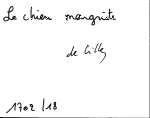 Le chien mangriste
de Lille
1702/18